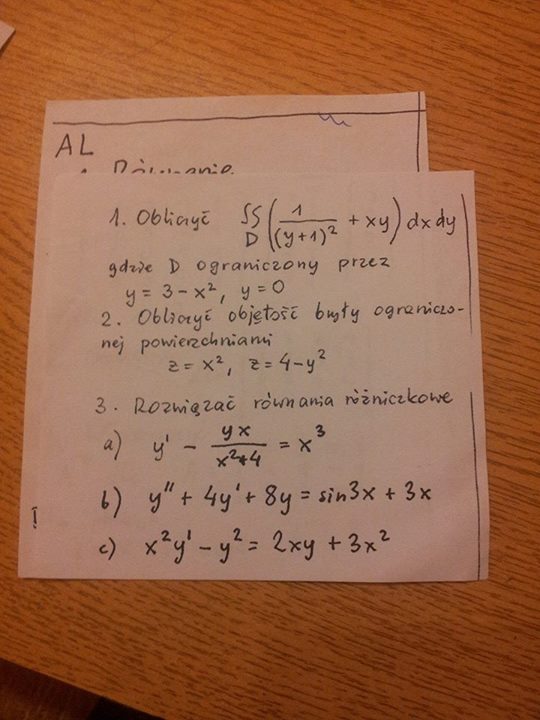 AL
1. Równanie
1. Obliczyć ∬_D (1/(y+1)² + xy) dx dy
gdzie D ograniczony przez
y = 3 - x², y = 0
2. Obliczyć objętość bryły ograniczo-
nej powierzchniami
z = x², z = 4 - y²
3. Rozwiązać równania różniczkowe
a) y' - yx/(x²+4) = x³
b) y'' + 4y' + 8y = sin3x + 3x
c) x²y' - y² = 2xy + 3x²